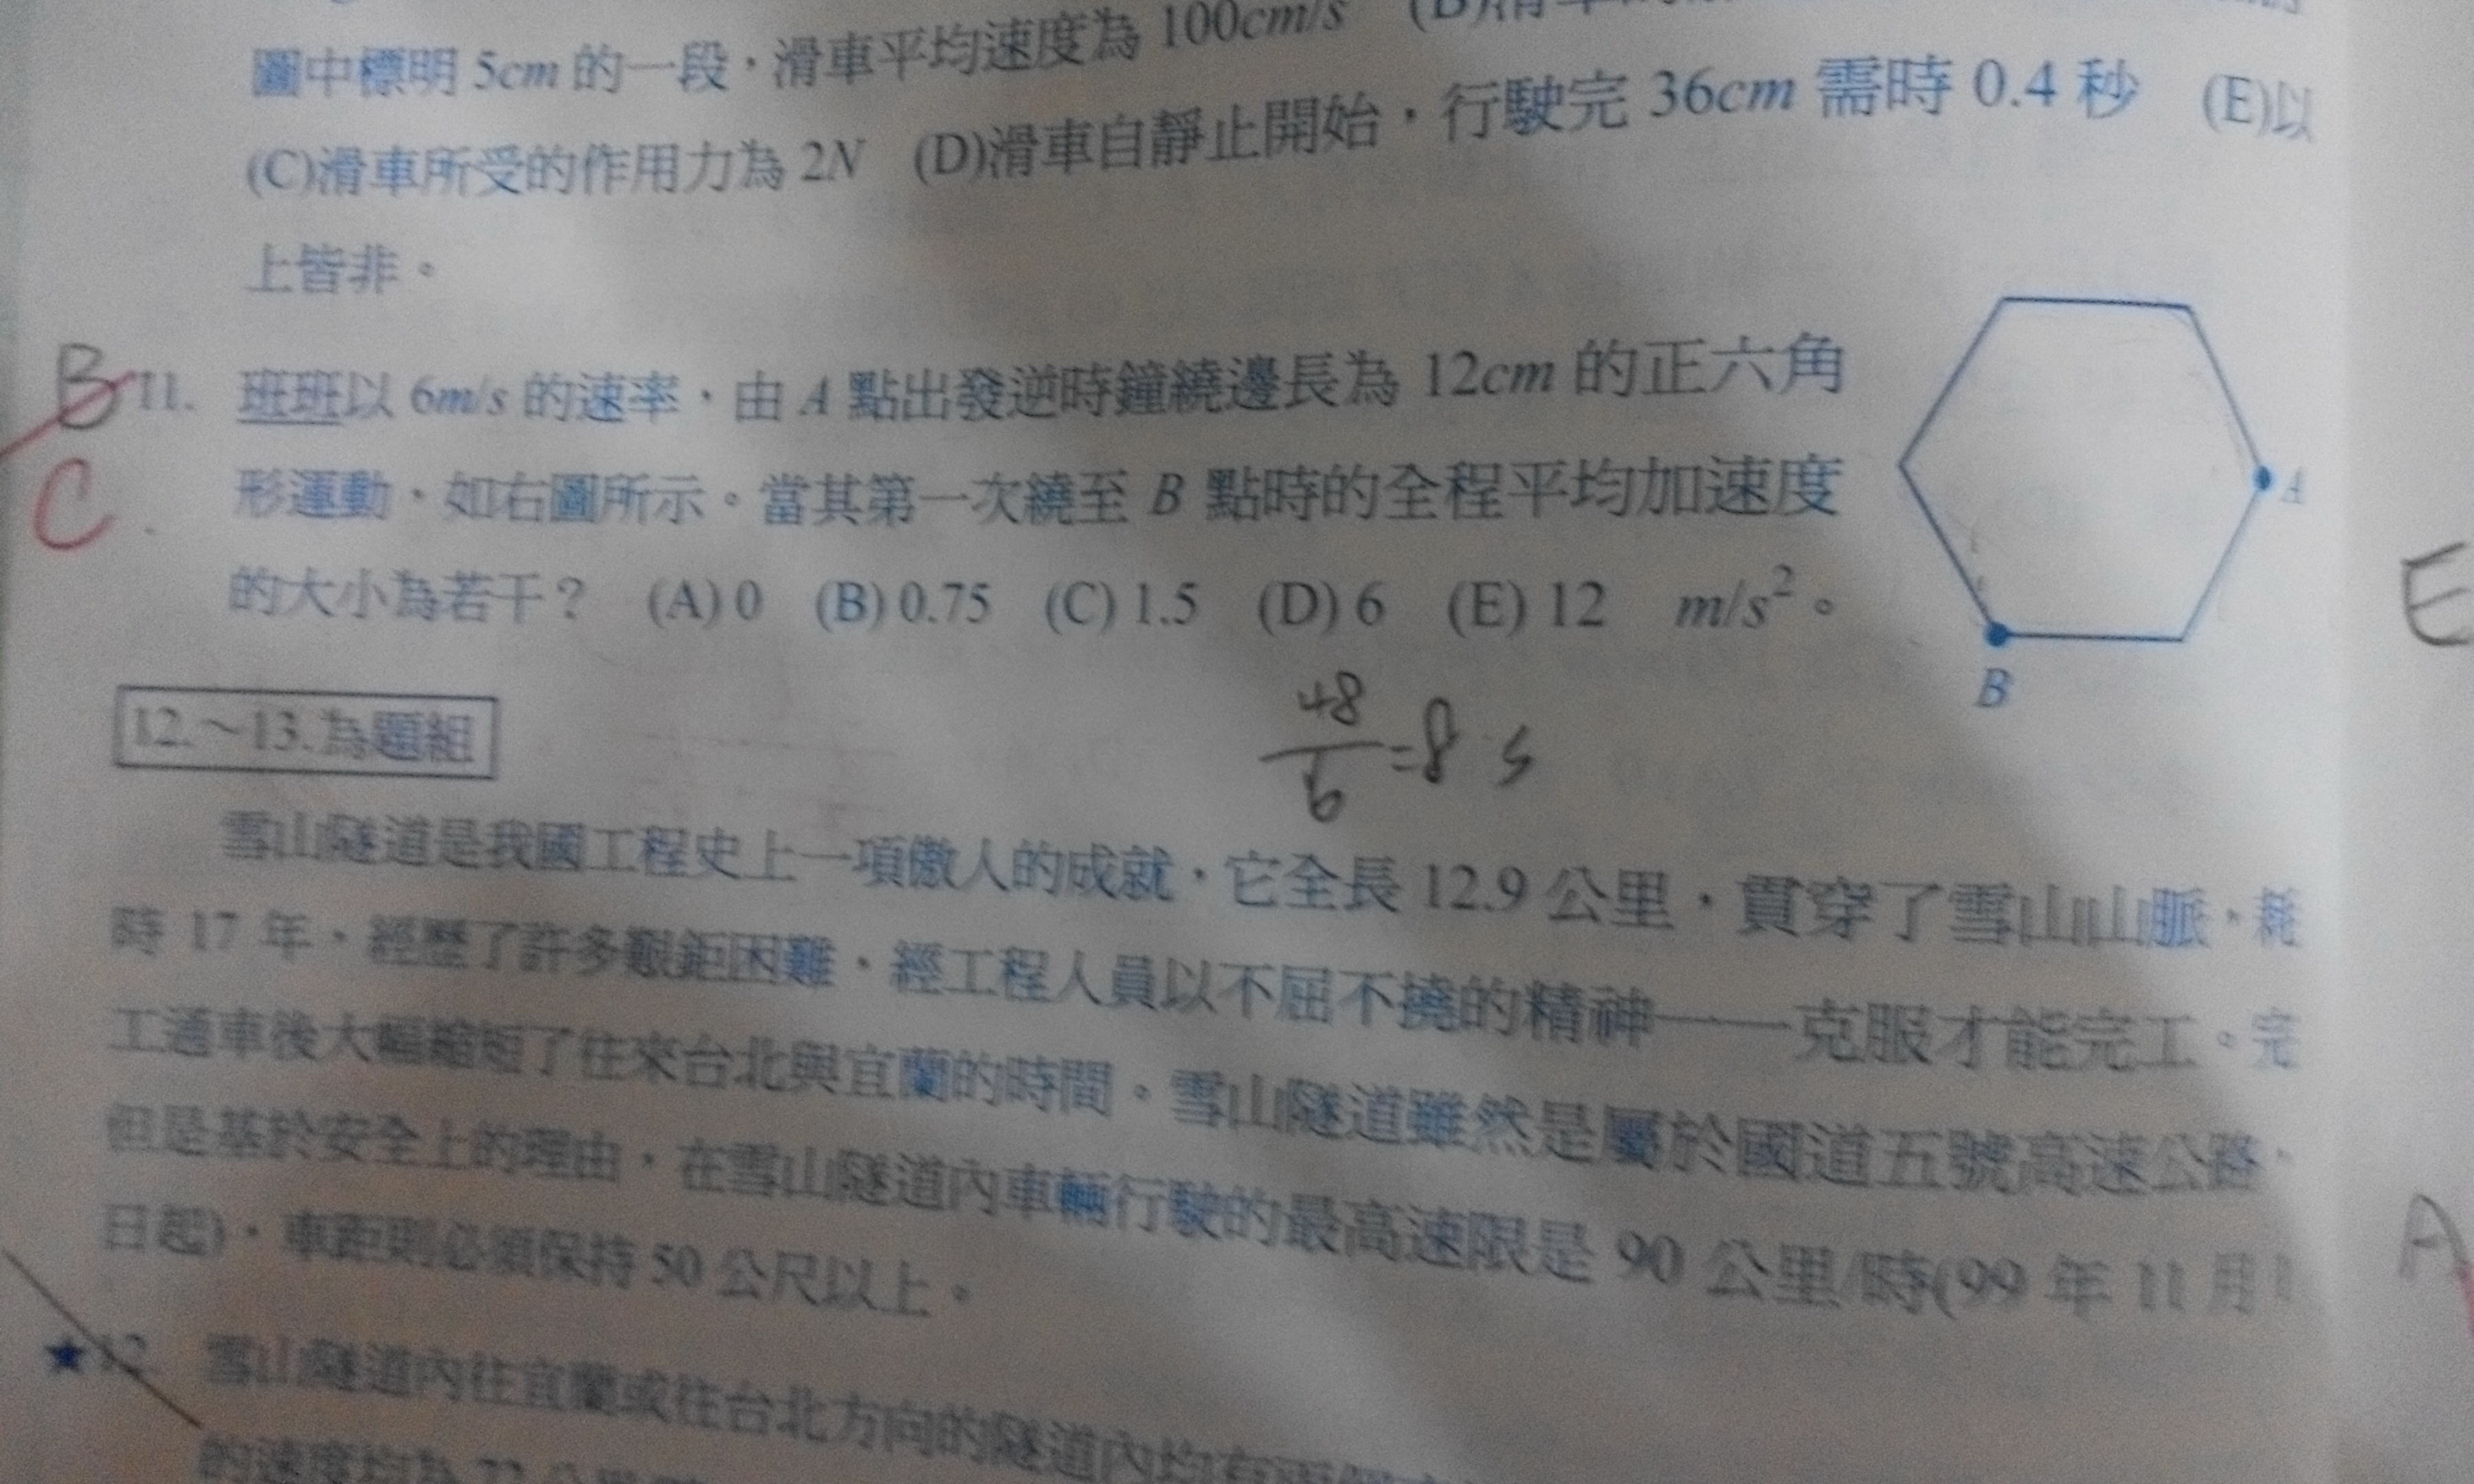 圖中標明 5cm 的一段，滑車平均速度為 100cm/s (B)滑車
(C)滑車所受的作用力為 2N (D)滑車自靜止開始，行駛完 36cm 需時 0.4 秒 (E)以
上皆非。
B 11. 班班以 6m/s 的速率，由 A 點出發逆時鐘繞邊長為 12cm 的正六角
C 形運動，如右圖所示。當其第一次繞至 B 點時的全程平均加速度
的大小為若干？ (A) 0 (B) 0.75 (C) 1.5 (D) 6 (E) 12 m/s²。
A
B
E
48/6=8 s
12.～13.為題組
雪山隧道是我國工程史上一項傲人的成就，它全長 12.9 公里，貫穿了雪山山脈，耗
時 17 年，經歷了許多艱鉅困難，經工程人員以不屈不撓的精神——克服才能完工。完
工通車後大幅縮短了往來台北與宜蘭的時間。雪山隧道雖然是屬於國道五號高速公路，
但是基於安全上的理由，在雪山隧道內車輛行駛的最高速限是 90 公里/時(99 年 11 月 1
日起)，車距則必須保持 50 公尺以上。
A
★12. 雪山隧道內往宜蘭或往台北方向的隧道內均有
的速度均為 72